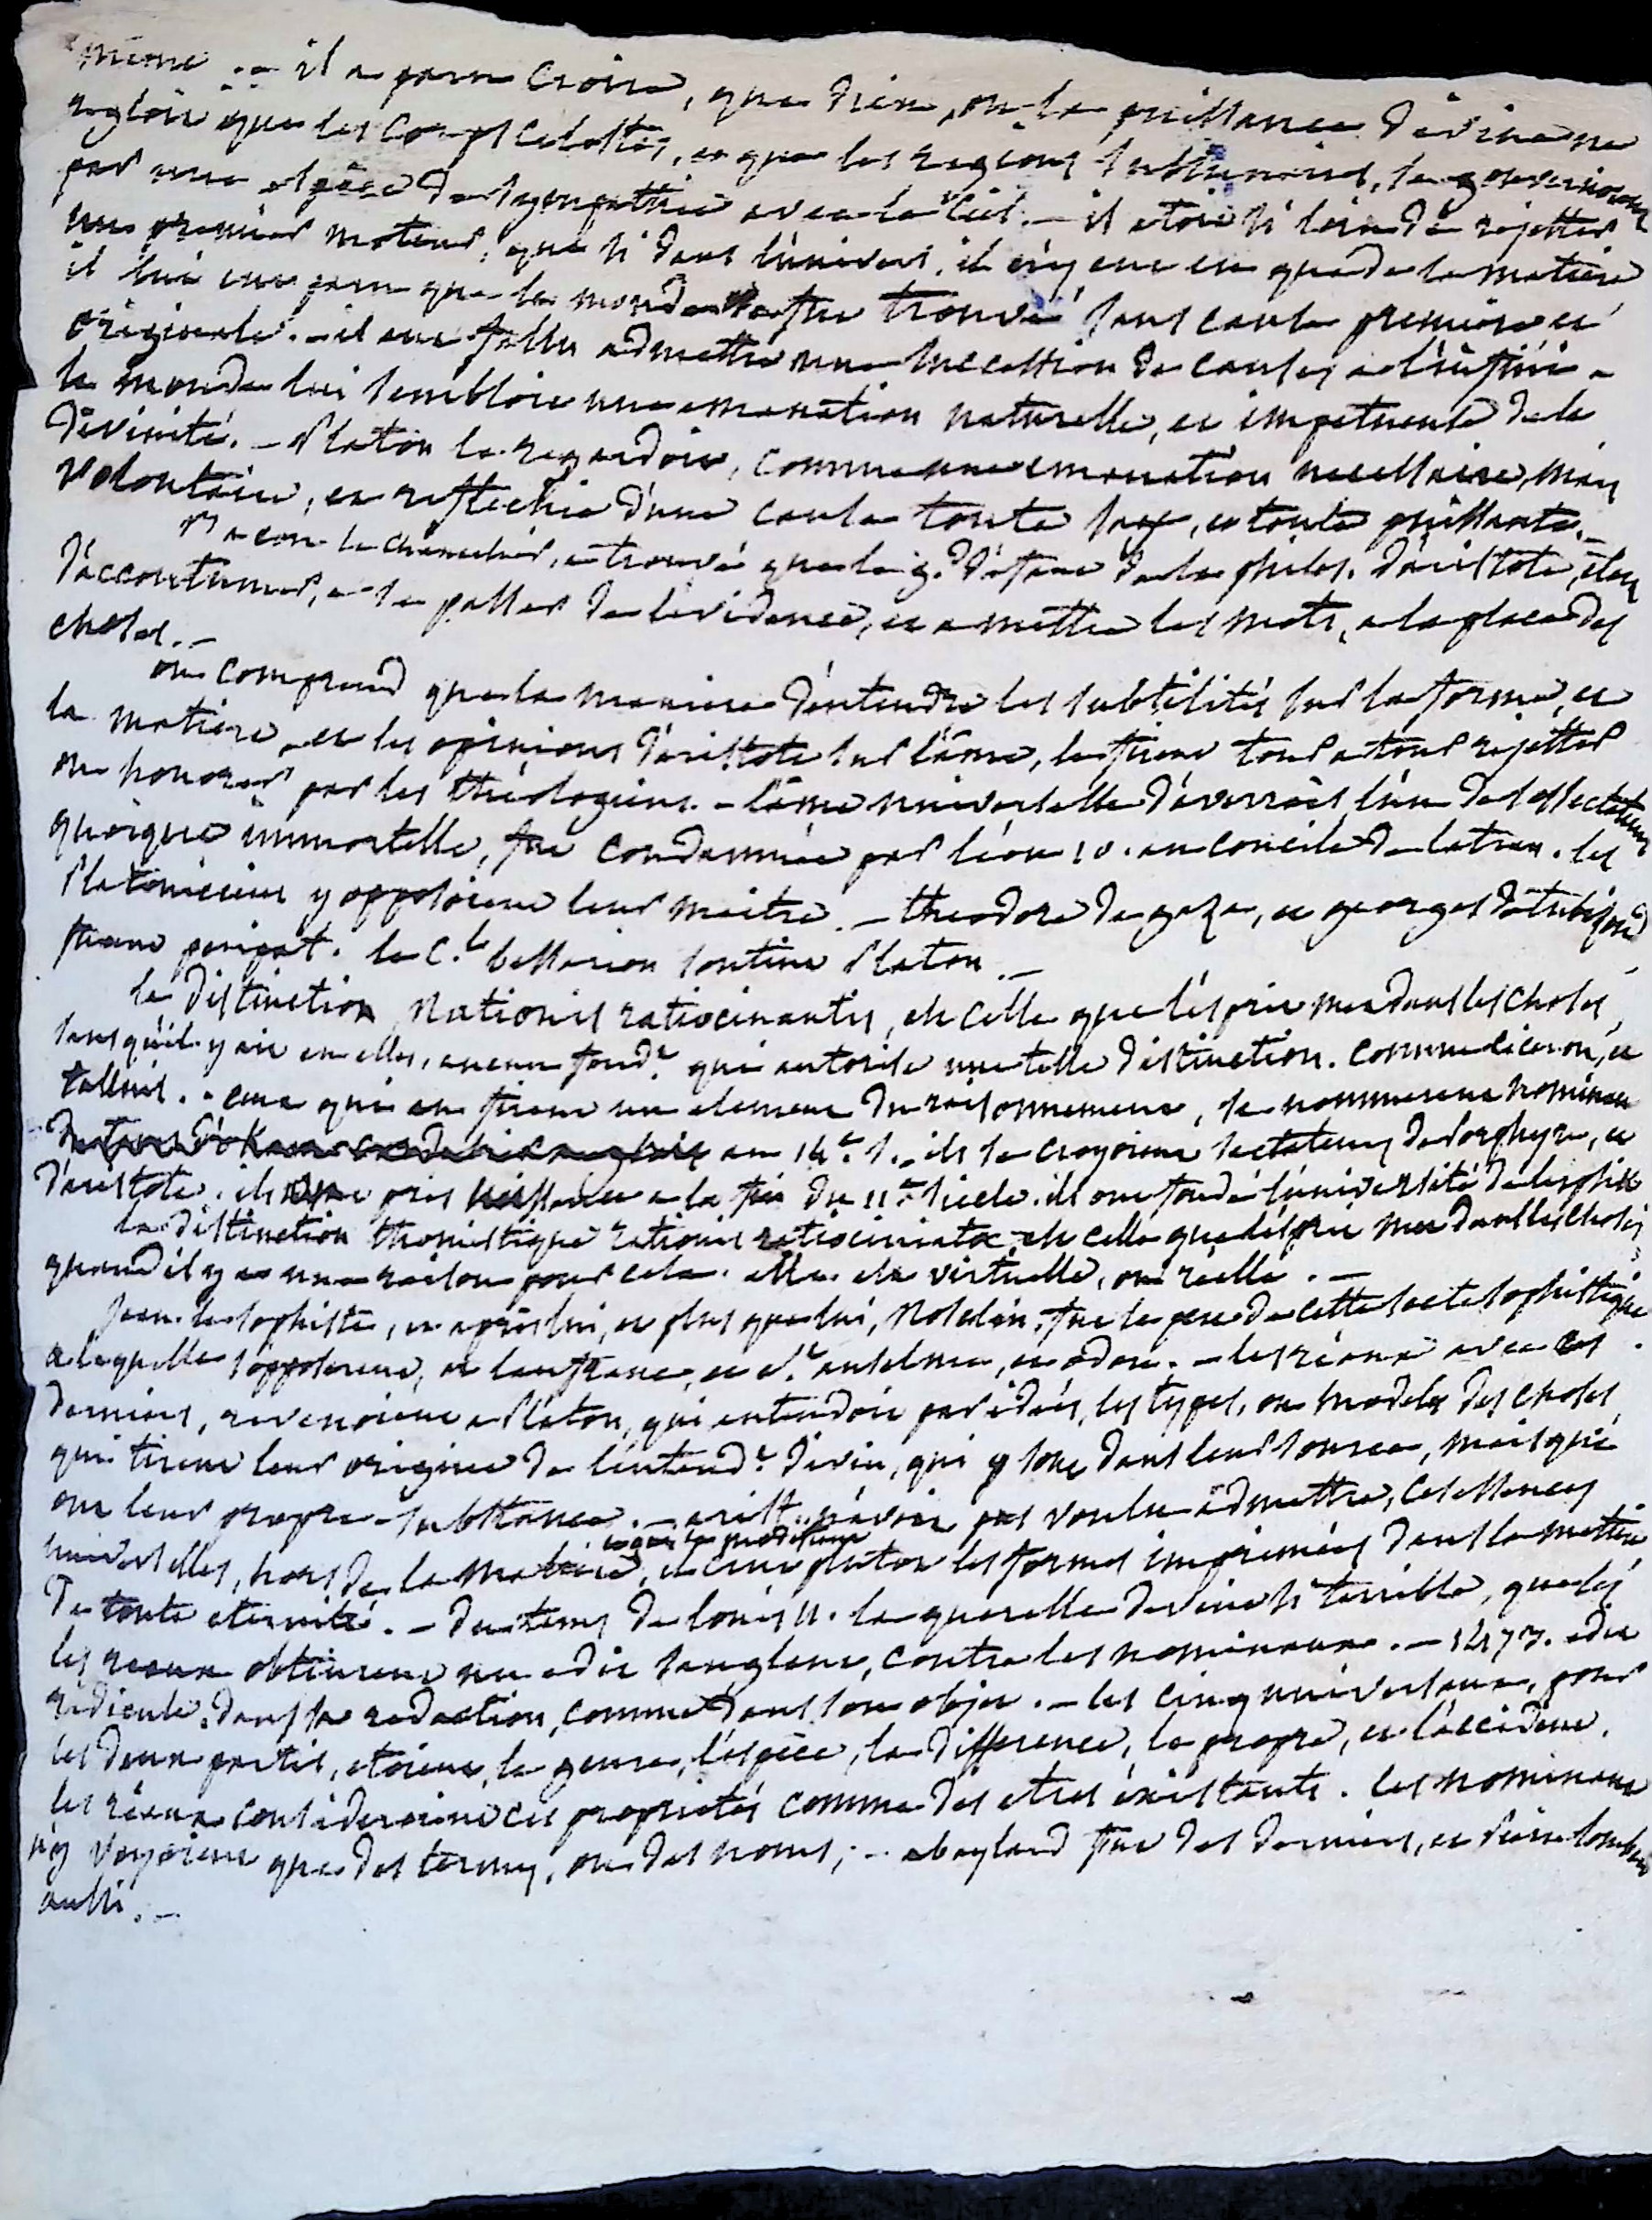 même .- il a paru croire, que dieu, ou la puissance divine ne
regloit que les corps celestes, et que les regions sublunaires, se gouvernoient
par une espèce de sympathie avec le ciel. - il etoit si loin de rejetter
un premier moteur, que si dans l'univers, il n'y eut eu que de la matière
il lui eut paru que le monde se fut trouvé sans cause première et
originale. - il eut fallu admettre une succession de causes a l'infini -
le monde lui sembloit une emanation naturelle, et impetueuse de la
divinité. - Platon le regardoit, comme une emanation necessaire, mais
volontaire, et reflechie d'une cause toute sage, et toute puissante. -
Bacon le chancelier, a trouvé que le g.d défaut de la philos. d'aristote, etoit
d'accoutumer, a se passer de l'evidence, et a mettre les mots, a la place des
choses. -
on comprend que la maniere d'entendre les subtilités sur la forme, et
la matiere, et les opinions d'aristote sur l'âme, les firent tour a tour rejetter
ou honorer par les théologiens. - l'âme universelle d'averroès l'un de ses sectateurs
quoique immortelle, fut condamnée par léon 10. au concile de latran. les
Platoniciens y opposoient leur maitre. - theodore de gaza, et georges de trebisond
furent peripat. le C.l bessarion soutint Platon. -
la distinction rationis ratiocinantis, est celle que l'esprit met dans les choses,
sans qu'il y ait en elles, aucun fond.t qui autorise une telle distinction. comme ciceron, et
tullius. - ceux qui en firent un element du raisonnement, se nommerent nominaux
au 14.e s. - ils se croyoient sectateurs de Porphyre, et
d'aristote. ils ont pris naissance a la fin du 11.e siecle. ils ont fondé l'université de leipsick
la distinction thomistique rationis ratiocinatae est celle que l'esprit met dans les choses
quand il y a une raison pour cela. elle est virtuelle, ou réelle. -
Jean le sophiste, et après lui, et plus que lui, Roscelin, fut le pere de cette secte sophistique
a laquelle s'opposerent, et lanfranc, et s.t anselme, et odon. - les réaux avec ces
derniers, revenoient a Platon, qui entendoit par idées, les types, ou modeles des choses,
qui tirent leur origine de l'entend.t divin, qui y sont dans leur source, mais qui
ont leur propre substance. - arist. n'avoit pas voulu admettre, ces essences
universelles, hors de la matière, il crut plutot les formes imprimées dans la matière
De toute eternité. - du tems de louis 11. la querelle devint si terrible, que les
les reaux obtinrent un edit sanglant, contre les nominaux. - 1473. edit
ridicule, dans sa redaction, comme dans son objet. - les cinq universaux, pour
les deux partis, etoient, le genre, l'espèce, la difference, le propre, et l'accident.
les réaux consideroient ces proprietés comme des etres éxistants. les nominaux
n'y voyoient que des termes, ou des noms; - abaylard fut des derniers, et Pierre lombard
aussi. -